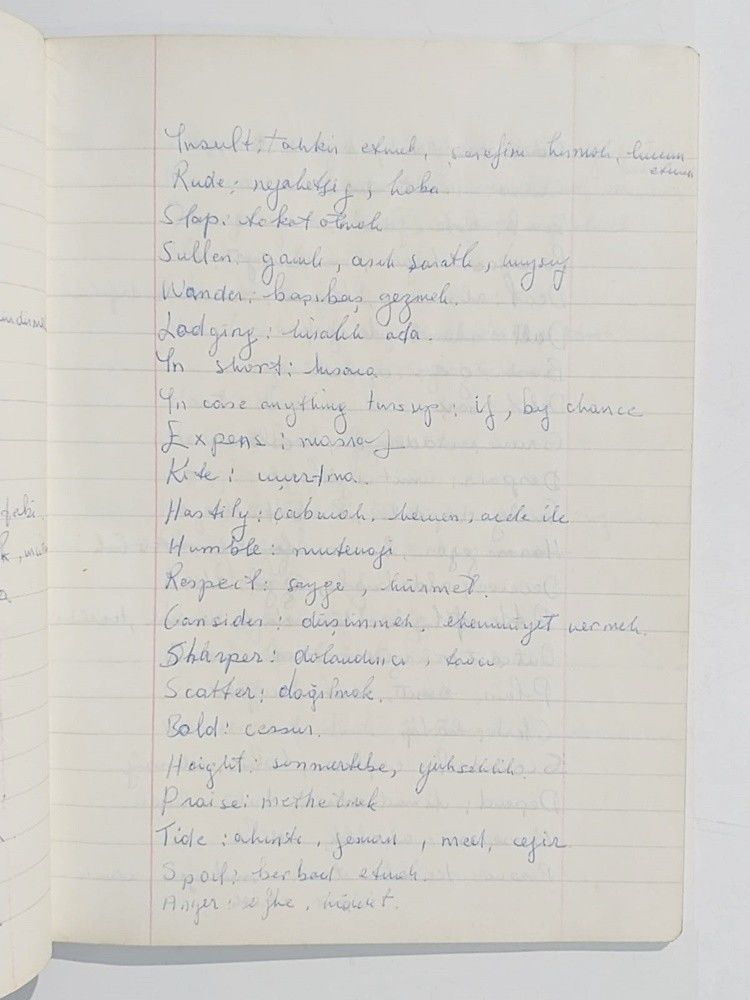 Insult: tahkir etmek, şerefini kırmak,
etmek
Rude: nezaketsiz, kaba
Slap: tokat atmak
Sullen: gamlı, asık suratlı, huysuz
Wander: başıbaş gezmek.
Lodging: kiralık oda.
In short: kısaca
In case anything turs up: if, by chance
Expens: masraf
Kite: uçurtma.
Hastily: çabucak, hemen, acele ile
Humble: mütevazi
Respect: saygı, hürmet.
Consider: düşünmek, ehemmiyet vermek.
Sharper: dolandırıcı,
Scatter: dağılmak.
Bold: cessur.
Height: yükseklik.
Praise: methetmek
Tide: akıntı, med, cezir
Spoil: berbad etmek.
Anger: